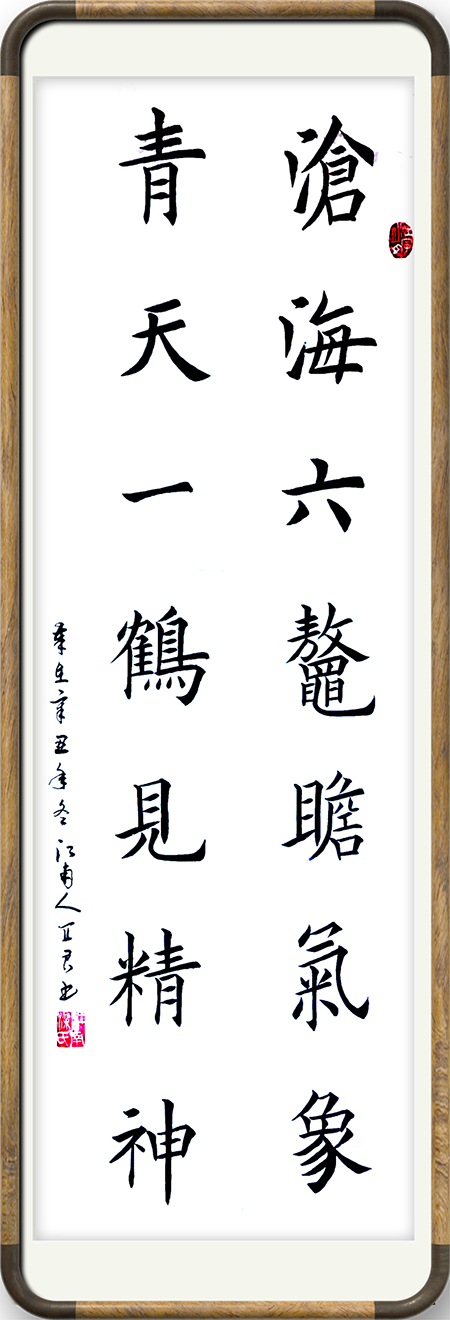 滄海六鼇瞻氣象
青天一鶴見精神
岁在辛丑年冬江南人正君书